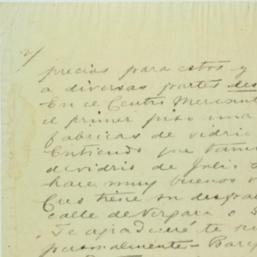 2/
precios para estos y
a diversas partes des
En el Centro Mercant
el primer piso una
fabricas de vidrio
Entiendo que tam
de vidrio de Julio
hace muy buenos
Cres tiene su despa
calle de Vergara o
Te agradeceré te
personalmente - Parq